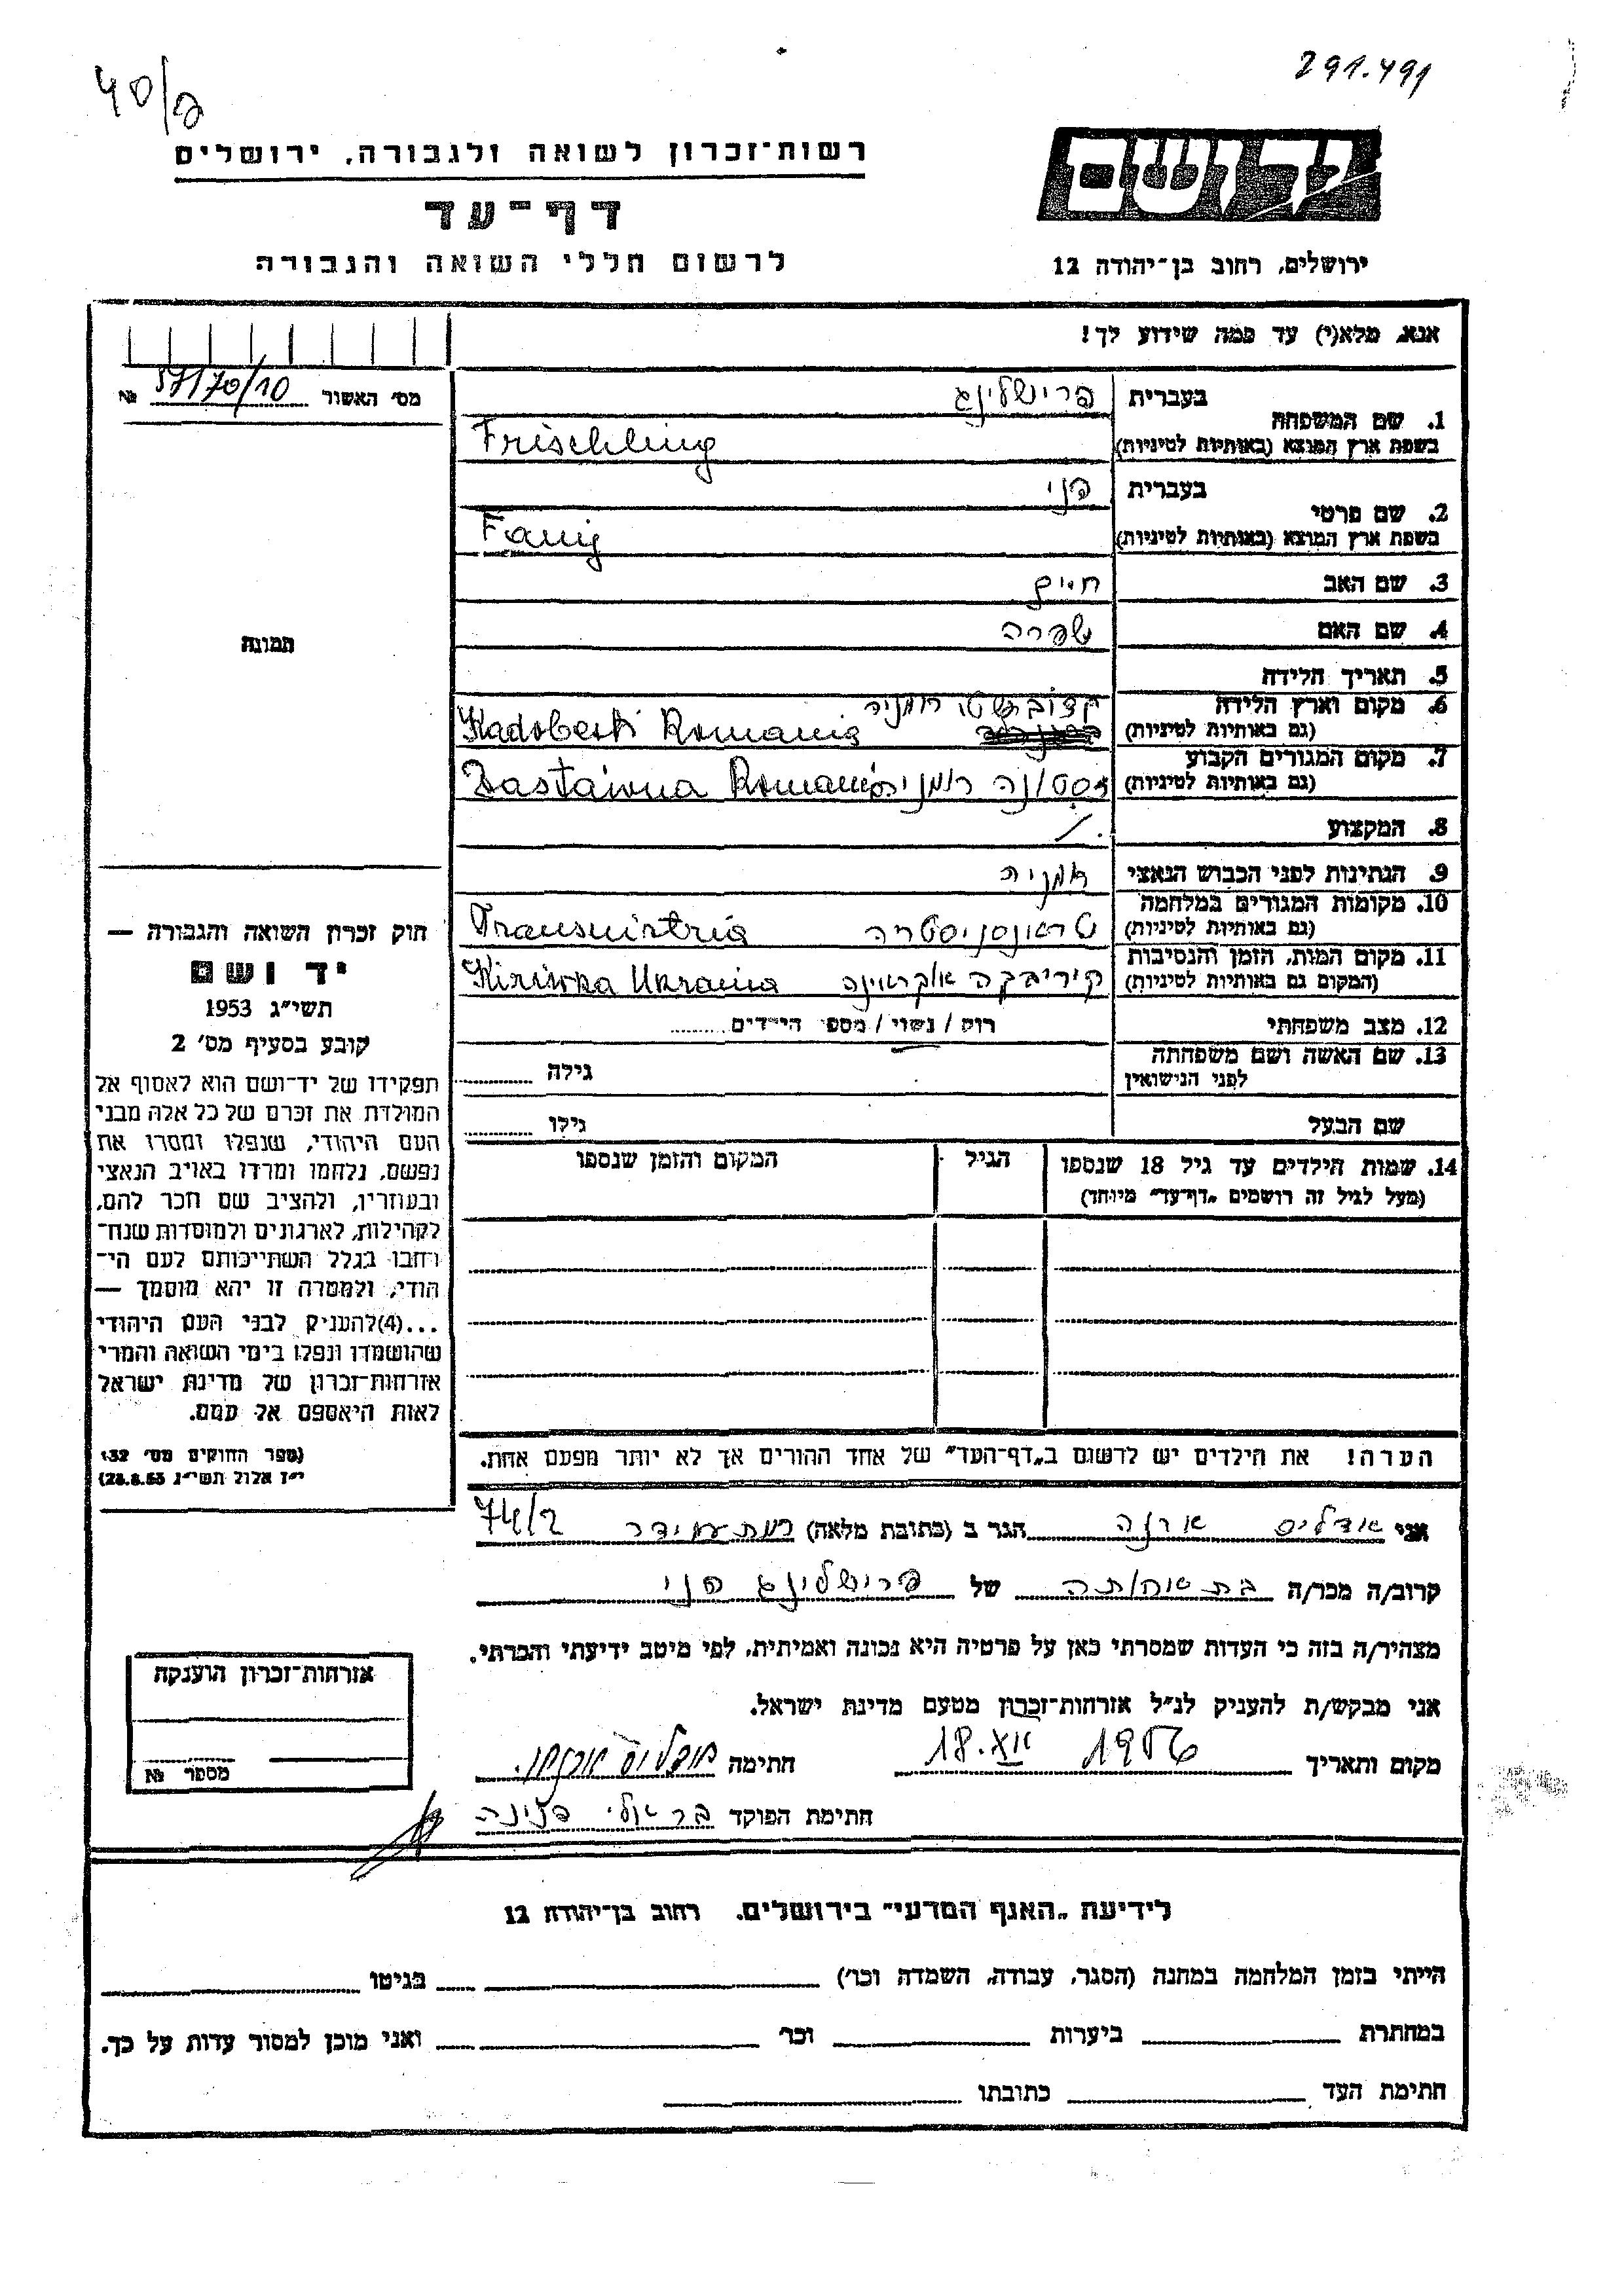 40/פ
291.491
רשות־זכרון לשואה ולגבורה, ירושלים
דף־עד
לרשום חללי השואה והגבורה
יד ושם
ירושלים, רחוב בן־יהודה 12
אנא, מלא(י) עד כמה שידוע לך!
מס׳ האשור 57170/10 №
1. שם המשפחה בעברית פרישלינג
בשפת ארץ המוצא (באותיות לטיניות) Frischling
2. שם פרטי בעברית פני
בשפת ארץ המוצא (באותיות לטיניות) Fanij
3. שם האב חיים
4. שם האם שפרה
5. תאריך הלידה
6. מקום וארץ הלידה רומניה
(גם באותיות לטיניות) Kadobesti Romania
7. מקום המגורים הקבוע
(גם באותיות לטיניות) רומניה Zastawna Romania
8. המקצוע
9. הנתינות לפני הכבוש הנאצי רומניה
10. מקומות המגורים במלחמה
(גם באותיות לטיניות) טראנסניסטריה Transnistria
11. מקום המות, הזמן והנסיבות
(המקום גם באותיות לטיניות) קיריבקה אוקראינה Kiriwka Ukraina
12. מצב משפחתי רוק / נשוי / מספר הילדים
13. שם האשה ושם משפחתה
לפני הנישואין גילה
שם הבעל גילו
14. שמות הילדים עד גיל 18 שנספו הגיל המקום והזמן שנספו
(מעל לגיל זה רושמים „דף־עד״ מיוחד)
הערה! את הילדים יש לרשום ב„דף־העד״ של אחד ההורים אך לא יותר מפעם אחת.
תמונה
חוק זכרון השואה והגבורה —
יד ושם
תשי״ג 1953
קובע בסעיף מס׳ 2
תפקידו של יד־ושם הוא לאסוף אל
המולדת את זכרם של כל אלה מבני
העם היהודי, שנפלו ומסרו את
נפשם, נלחמו ומרדו באויב הנאצי
ובעוזריו, ולהציב שם וזכר להם,
לקהילות, לארגונים ולמוסדות שנח־
רבו בגלל השתייכותם לעם הי־
הודי, ולמטרה זו יהא מוסמך —
...(4)להעניק לבני העם היהודי
שהושמדו ונפלו בימי השואה והמרי
אזרחות־זכרון של מדינת ישראל
לאות היאספם אל עמם.
(ספר החוקים מס׳ 132
י״ז אלול תשי״ג 28.8.53)
אני אדליס ארנה הגר ב (כתובת מלאה) רמת עמידר 74/2
קרוב/ה מכר/ה בת אחותה של פרישלינג פני
מצהיר/ה בזה כי העדות שמסרתי כאן על פרטיה היא נכונה ואמיתית, לפי מיטב ידיעתי והכרתי.
אני מבקש/ת להעניק לנ״ל אזרחות־זכרון מטעם מדינת ישראל.
מקום ותאריך 1956 18. חתימה
חתימת הפוקד בראלי פנינה
אזרחות־זכרון הוענקה
מספר №
לידיעת „האגף המדעי״ בירושלים. רחוב בן־יהודה 12
הייתי בזמן המלחמה במחנה (הסגר, עבודה, השמדה וכו׳) בגיטו
במחתרת ביערות וכו׳ ואני מוכן למסור עדות על כך.
חתימת העד כתובתו